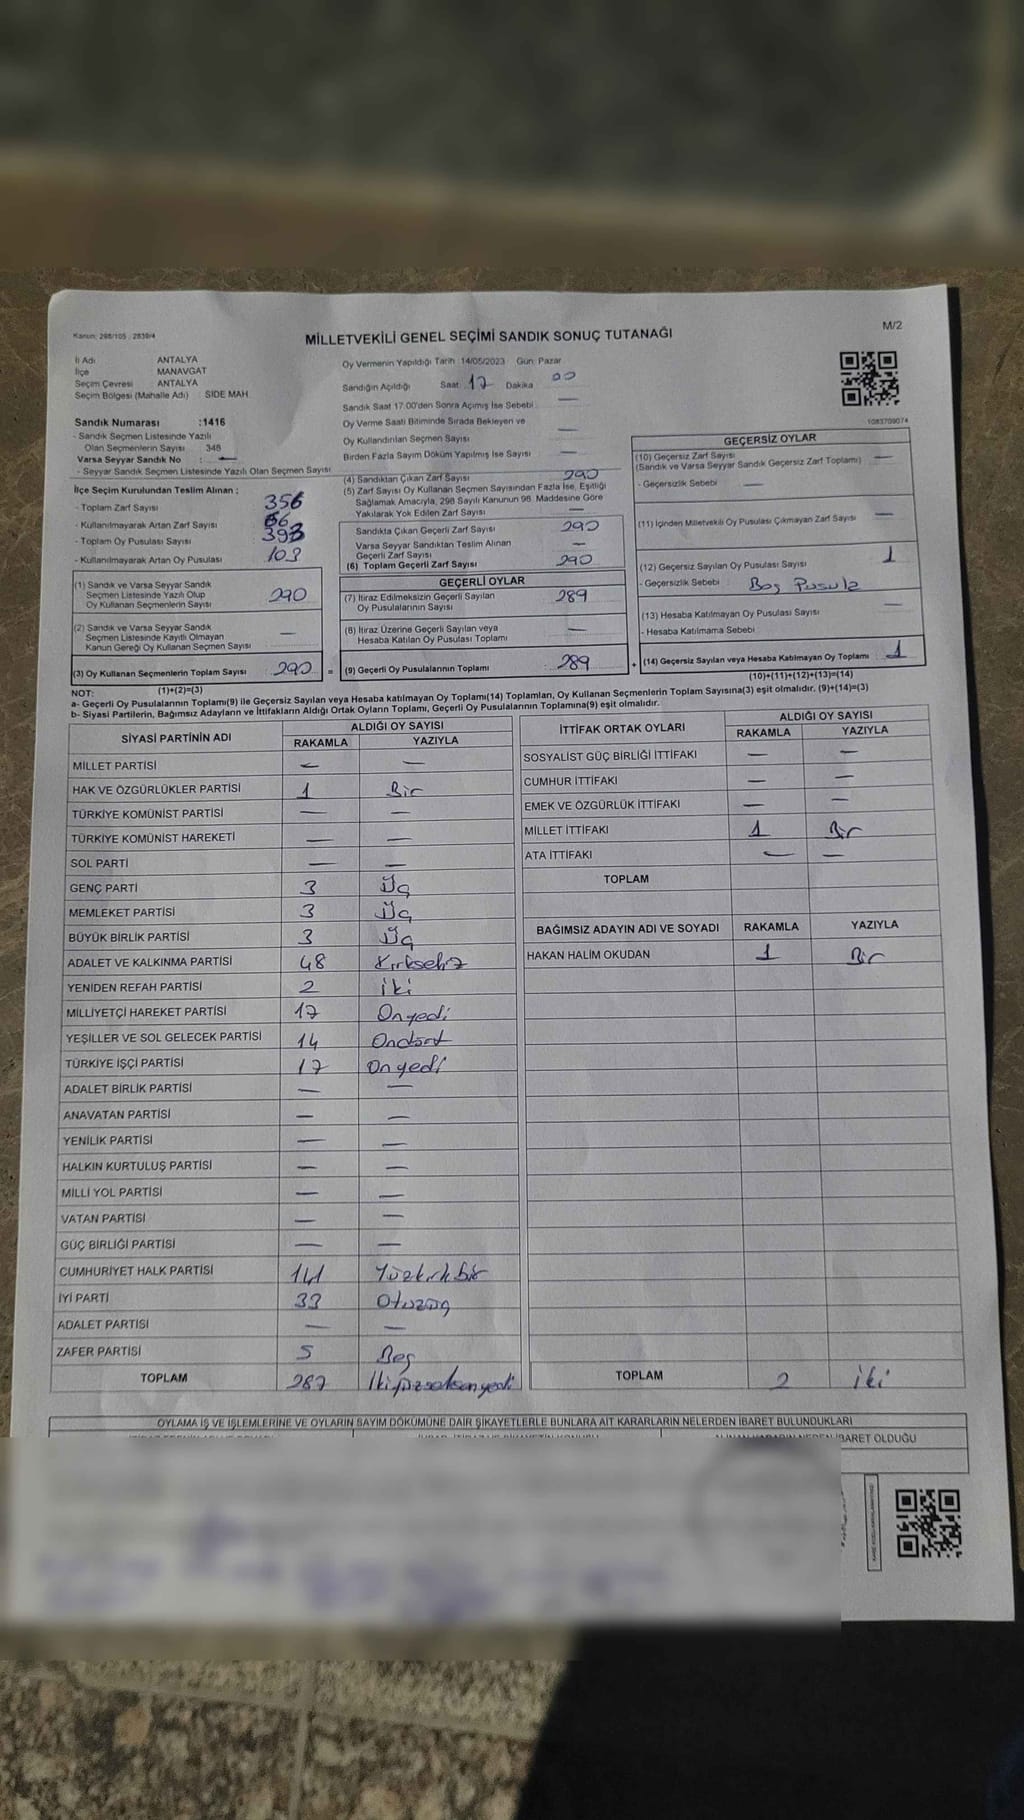 Kanun: 298/105 - 2839/4
MİLLETVEKİLİ GENEL SEÇİMİ SANDIK SONUÇ TUTANAĞI
M/2
İl Adı ANTALYA
İlçe MANAVGAT
Seçim Çevresi ANTALYA
Seçim Bölgesi (Mahalle Adı) SIDE MAH.
Sandık Numarası :1416
- Sandık Seçmen Listesinde Yazılı
Olan Seçmenlerin Sayısı 346
Varsa Seyyar Sandık No : —
- Seyyar Sandık Seçmen Listesinde Yazılı Olan Seçmen Sayısı
İlçe Seçim Kurulundan Teslim Alınan :
- Toplam Zarf Sayısı 356
- Kullanılmayarak Artan Zarf Sayısı 66
- Toplam Oy Pusulası Sayısı 393
- Kullanılmayarak Artan Oy Pusulası 103
(1) Sandık ve Varsa Seyyar Sandık
Seçmen Listesinde Yazılı Olup
Oy Kullanan Seçmenlerin Sayısı 290
(2) Sandık ve Varsa Seyyar Sandık
Seçmen Listesinde Kayıtlı Olmayan
Kanun Gereği Oy Kullanan Seçmen Sayısı —
(3) Oy Kullanan Seçmenlerin Toplam Sayısı 290 =
(1)+(2)=(3)
Oy Vermenin Yapıldığı Tarih :14/05/2023 Gün: Pazar
Sandığın Açıldığı Saat: 17 Dakika 00
Sandık Saat 17:00'den Sonra Açımış İse Sebebi : —
Oy Verme Saati Bitiminde Sırada Bekleyen ve
Oy Kullandırılan Seçmen Sayısı —
Birden Fazla Sayım Döküm Yapılmış İse Sayısı —
(4) Sandıktan Çıkan Zarf Sayısı 290
(5) Zarf Sayısı Oy Kullanan Seçmen Sayısından Fazla İse, Eşitliği
Sağlamak Amacıyla, 298 Sayılı Kanunun 98. Maddesine Göre
Yakılarak Yok Edilen Zarf Sayısı —
Sandıkta Çıkan Geçerli Zarf Sayısı 290
Varsa Seyyar Sandıktan Teslim Alınan
Geçerli Zarf Sayısı —
(6) Toplam Geçerli Zarf Sayısı 290
GEÇERLİ OYLAR
(7) İtiraz Edilmeksizin Geçerli Sayılan
Oy Pusulalarının Sayısı 289
(8) İtiraz Üzerine Geçerli Sayılan veya
Hesaba Katılan Oy Pusulası Toplamı —
(9) Geçerli Oy Pusulalarının Toplamı 289 +
1083709074
GEÇERSİZ OYLAR
(10) Geçersiz Zarf Sayısı —
(Sandık ve Varsa Seyyar Sandık Geçersiz Zarf Toplamı)
- Geçersizlik Sebebi —
(11) İçinden Milletvekili Oy Pusulası Çıkmayan Zarf Sayısı —
(12) Geçersiz Sayılan Oy Pusulası Sayısı 1
- Geçersizlik Sebebi Boş Pusula
(13) Hesaba Katılmayan Oy Pusulası Sayısı —
- Hesaba Katılmama Sebebi
(14) Geçersiz Sayılan veya Hesaba Katılmayan Oy Toplamı 1
(10)+(11)+(12)+(13)=(14)
NOT:
a- Geçerli Oy Pusulalarının Toplamı(9) ile Geçersiz Sayılan veya Hesaba katılmayan Oy Toplamı(14) Toplamları, Oy Kullanan Seçmenlerin Toplam Sayısına(3) eşit olmalıdır. (9)+(14)=(3)
b- Siyasi Partilerin, Bağımsız Adayların ve İttifakların Aldığı Ortak Oyların Toplamı, Geçerli Oy Pusulalarının Toplamına(9) eşit olmalıdır.
SİYASİ PARTİNİN ADI ALDIĞI OY SAYISI
RAKAMLA YAZIYLA
MİLLET PARTİSİ — —
HAK VE ÖZGÜRLÜKLER PARTİSİ 1 Bir
TÜRKİYE KOMÜNİST PARTİSİ — —
TÜRKİYE KOMÜNİST HAREKETİ — —
SOL PARTİ — —
GENÇ PARTİ 3 Üç
MEMLEKET PARTİSİ 3 Üç
BÜYÜK BİRLİK PARTİSİ 3 Üç
ADALET VE KALKINMA PARTİSİ 48 Kırksekiz
YENİDEN REFAH PARTİSİ 2 iki
MİLLİYETÇİ HAREKET PARTİSİ 17 Onyedi
YEŞİLLER VE SOL GELECEK PARTİSİ 14 Ondört
TÜRKİYE İŞÇİ PARTİSİ 17 Onyedi
ADALET BİRLİK PARTİSİ — —
ANAVATAN PARTİSİ — —
YENİLİK PARTİSİ — —
HALKIN KURTULUŞ PARTİSİ — —
MİLLİ YOL PARTİSİ — —
VATAN PARTİSİ — —
GÜÇ BİRLİĞİ PARTİSİ — —
CUMHURİYET HALK PARTİSİ 141 Yüzkırkbir
İYİ PARTİ 33 Otuzüç
ADALET PARTİSİ — —
ZAFER PARTİSİ 5 Beş
TOPLAM 287 İkiyüzseksenyedi
İTTİFAK ORTAK OYLARI ALDIĞI OY SAYISI
RAKAMLA YAZIYLA
SOSYALİST GÜÇ BİRLİĞİ İTTİFAKI — —
CUMHUR İTTİFAKI — —
EMEK VE ÖZGÜRLÜK İTTİFAKI — —
MİLLET İTTİFAKI 1 Bir
ATA İTTİFAKI — —
TOPLAM
BAĞIMSIZ ADAYIN ADI VE SOYADI RAKAMLA YAZIYLA
HAKAN HALİM OKUDAN 1 Bir
TOPLAM 2 iki
OYLAMA İŞ VE İŞLEMLERİNE VE OYLARIN SAYIM DÖKÜMÜNE DAİR ŞİKAYETLERLE BUNLARA AİT KARARLARIN NELERDEN İBARET BULUNDUKLARI
İBARET OLDUĞU